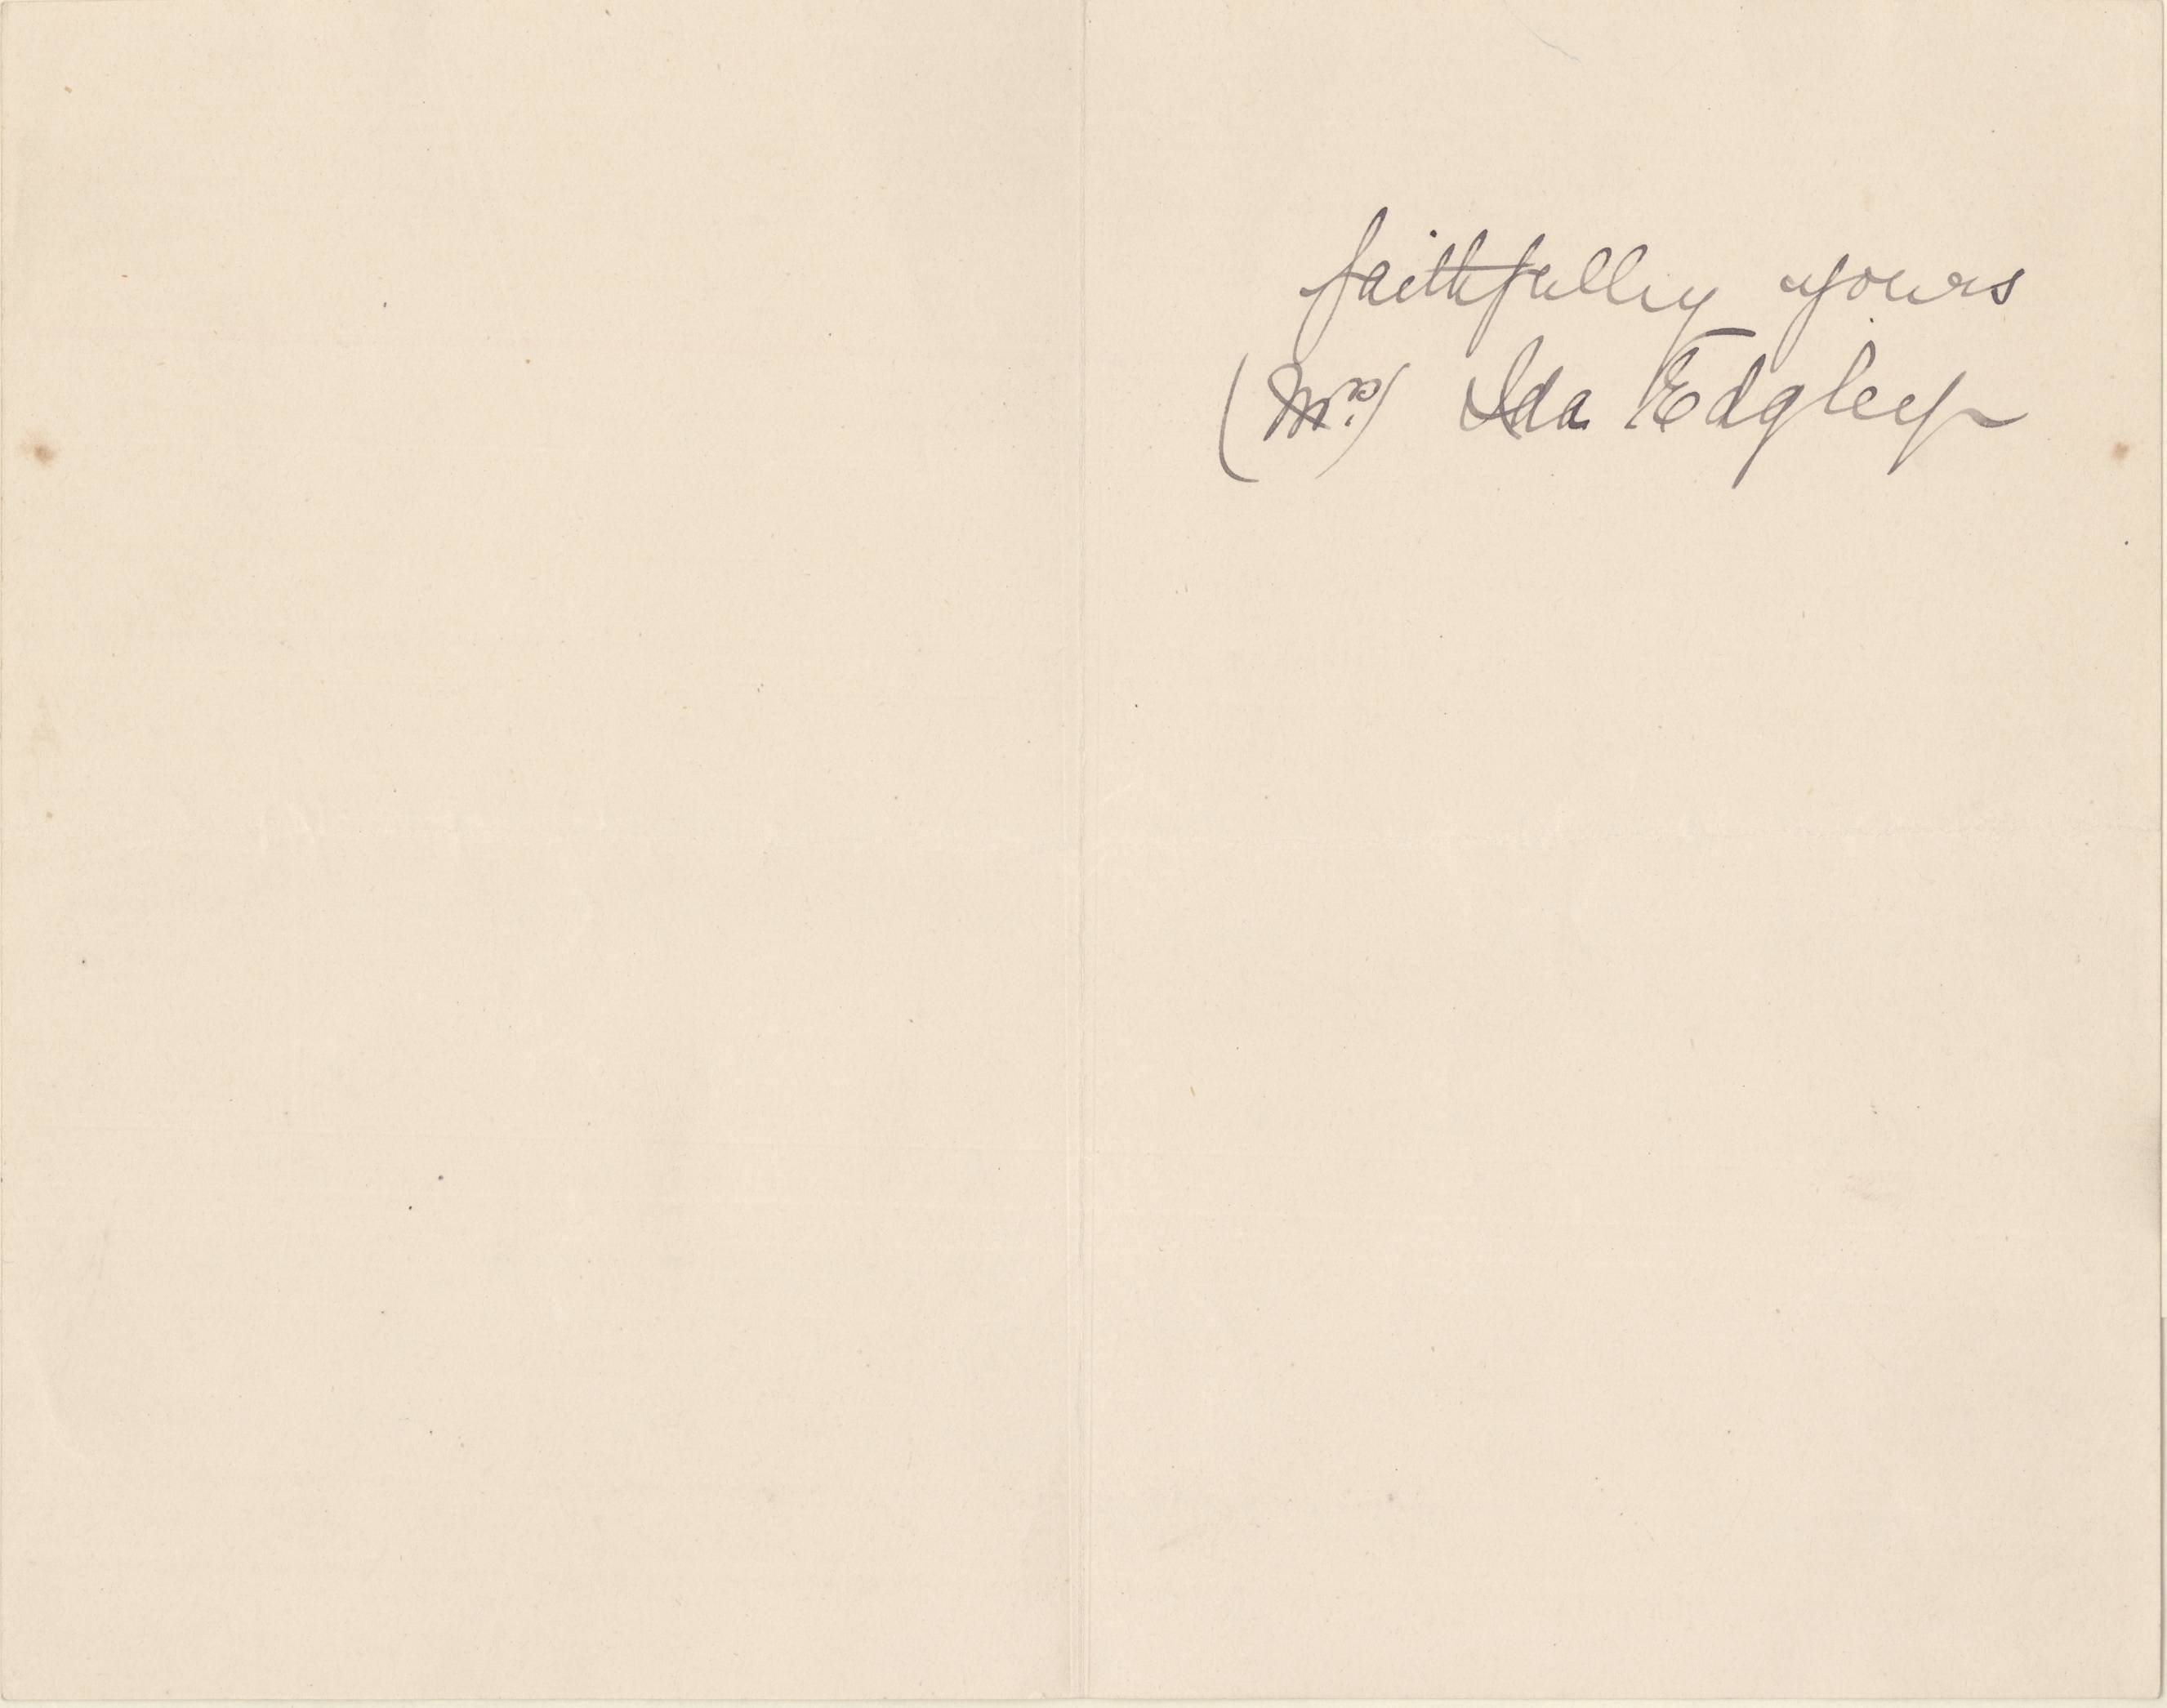 faithfully yours
(Mrs.) Ida Edgley